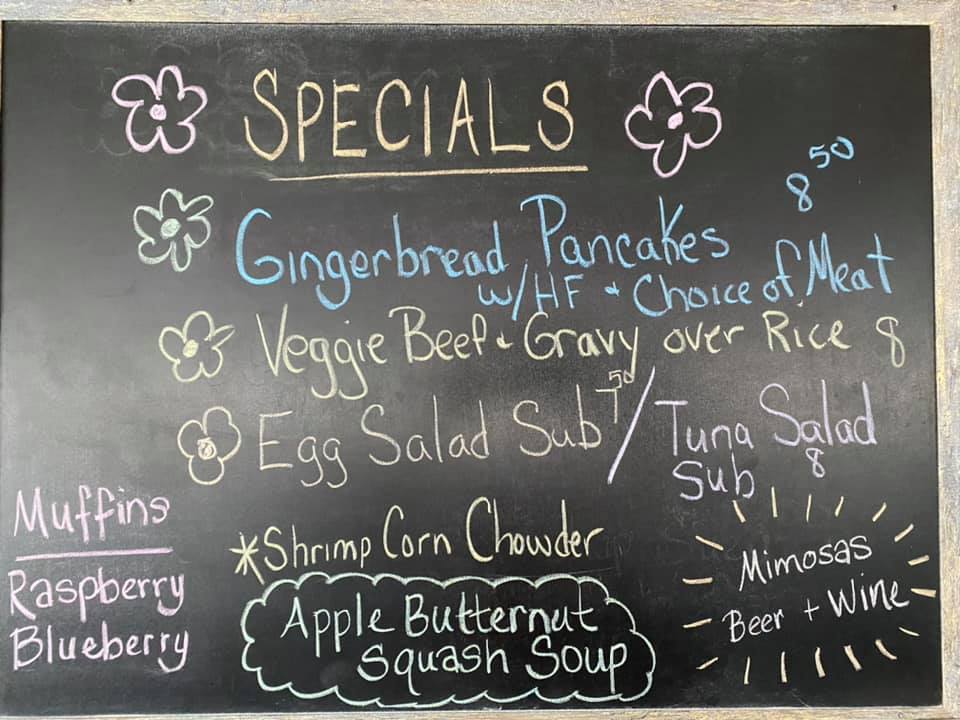 SPECIALS
Gingerbread Pancakes 8 50
w/HF + Choice of Meat
Veggie Beef + Gravy over Rice 8
Egg Salad Sub 7 50 / Tuna Salad
Sub 8
Muffins
Raspberry
Blueberry
*Shrimp Corn Chowder
Apple Butternut
Squash Soup
Mimosas
Beer + Wine